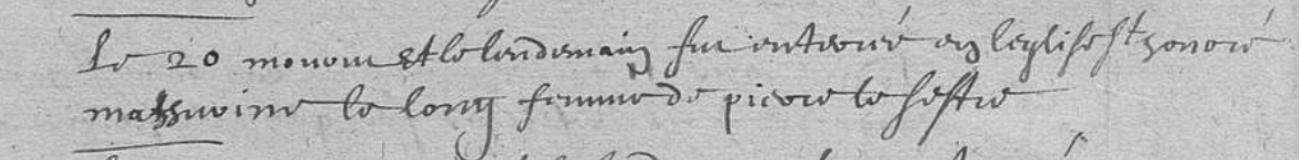 Le 20 mourut et le lendemain fut enterré en leglise st honoré
mathurine le long femme de pierre le hestre